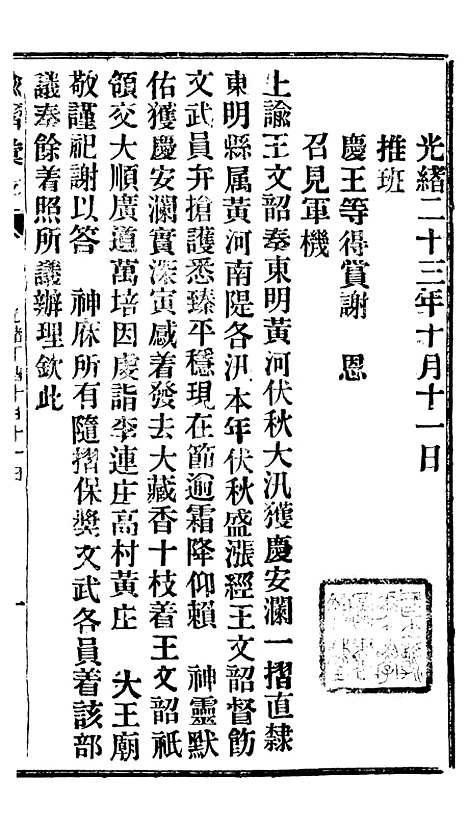 光緒二十三年十月十一日
推班
慶王等得賞謝　恩
召見軍機
上諭王文韶奏東明黃河伏秋大汛獲慶安瀾一摺直隸
東明縣属黃河南隄各汛本年伏秋盛漲經王文韶督飭
文武員弁搶護悉臻平穩現在節逾霜降仰賴　神靈默
佑獲慶安瀾實深寅感着發去大藏香十枝着王文韶祇
領交大順廣道萬培因虔詣李連庄高村黃庄　大王廟
敬謹祀謝以答　神庥所有隨摺保獎文武各員着該部
議奏餘着照所議辦理欽此
諭摺彙存
光緒丁酉十月十一日
一